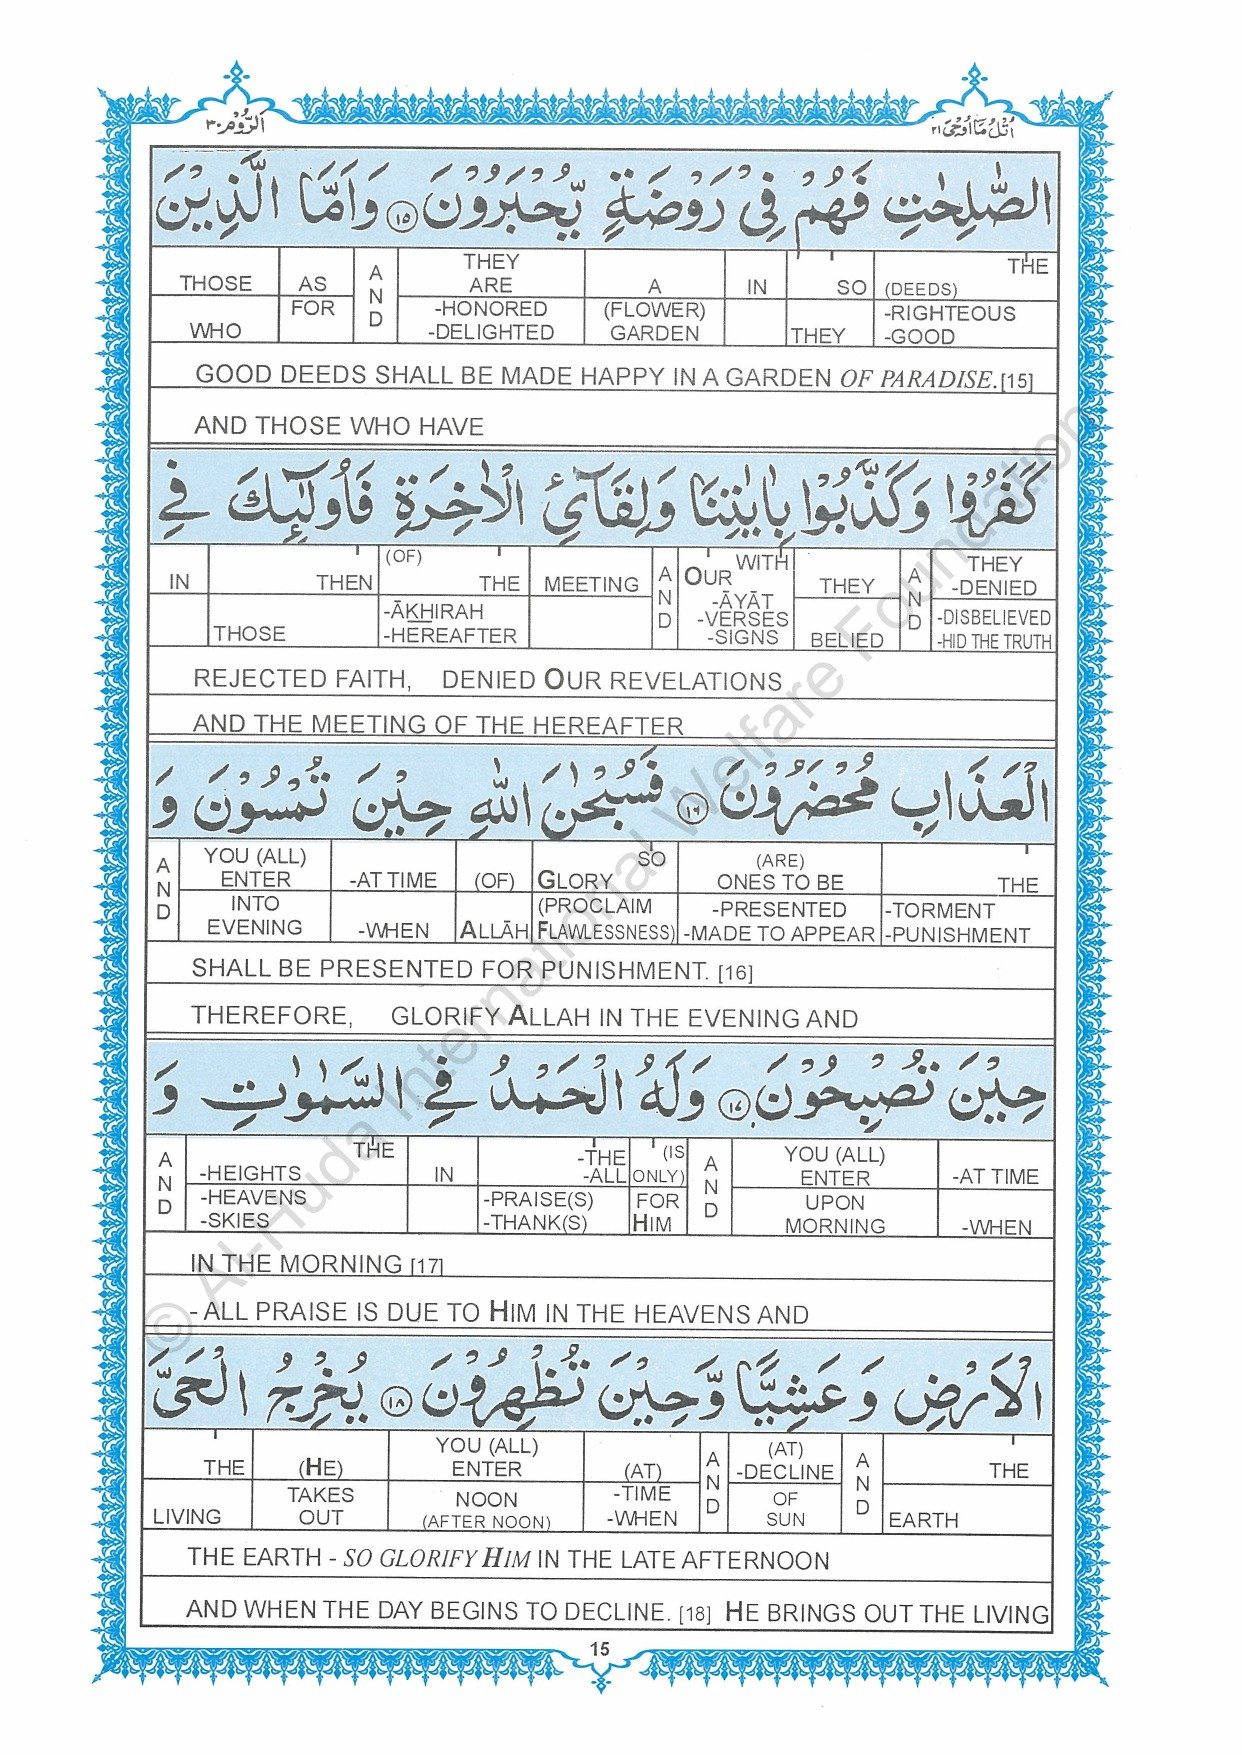 اُتْلُ مَا اُوْحِیَ ٢١
اَلرُّوْم ٣٠
الصّٰلِحٰتِ فَهُمْ فِیْ رَوْضَةٍ یُّحْبَرُوْنَ ١٥ وَاَمَّا الَّذِیْنَ
THOSE AS A THEY A IN SO THE
WHO FOR N ARE (FLOWER) THEY (DEEDS)
D -HONORED GARDEN -RIGHTEOUS
-DELIGHTED -GOOD
GOOD DEEDS SHALL BE MADE HAPPY IN A GARDEN OF PARADISE.[15]
AND THOSE WHO HAVE
كَفَرُوْا وَكَذَّبُوْا بِاٰیٰتِنَا وَلِقَآئِ الْاٰخِرَةِ فَاُولٰٓئِكَ فِی
IN THEN (OF) THE MEETING A OUR WITH THEY A THEY
THOSE -ĀKHIRAH N -ĀYĀT BELIED N -DENIED
-HEREAFTER D -VERSES D -DISBELIEVED
-SIGNS -HID THE TRUTH
REJECTED FAITH, DENIED OUR REVELATIONS
AND THE MEETING OF THE HEREAFTER
الْعَذَابِ مُحْضَرُوْنَ ١٦ فَسُبْحٰنَ اللّٰهِ حِیْنَ تُمْسُوْنَ وَ
A YOU (ALL) -AT TIME (OF) SO (ARE) THE
N ENTER -WHEN ALLĀH GLORY ONES TO BE -TORMENT
D INTO (PROCLAIM -PRESENTED -PUNISHMENT
EVENING FLAWLESSNESS) -MADE TO APPEAR
SHALL BE PRESENTED FOR PUNISHMENT. [16]
THEREFORE, GLORIFY ALLAH IN THE EVENING AND
حِیْنَ تُصْبِحُوْنَ ١٧ وَلَهُ الْحَمْدُ فِی السَّمٰوٰتِ وَ
A THE IN -THE (IS A YOU (ALL) -AT TIME
N -HEIGHTS -ALL ONLY) N ENTER -WHEN
D -HEAVENS -PRAISE(S) FOR D UPON
-SKIES -THANK(S) HIM MORNING
IN THE MORNING [17]
- ALL PRAISE IS DUE TO HIM IN THE HEAVENS AND
الْاَرْضِ وَعَشِیًّا وَّحِیْنَ تُظْهِرُوْنَ ١٨ یُخْرِجُ الْحَیَّ
THE (HE) YOU (ALL) (AT) A (AT) A THE
LIVING TAKES ENTER -TIME N -DECLINE N EARTH
OUT NOON -WHEN D OF D
(AFTER NOON) SUN
THE EARTH - SO GLORIFY HIM IN THE LATE AFTERNOON
AND WHEN THE DAY BEGINS TO DECLINE. [18] HE BRINGS OUT THE LIVING
15
© Al-Huda International Welfare Foundation